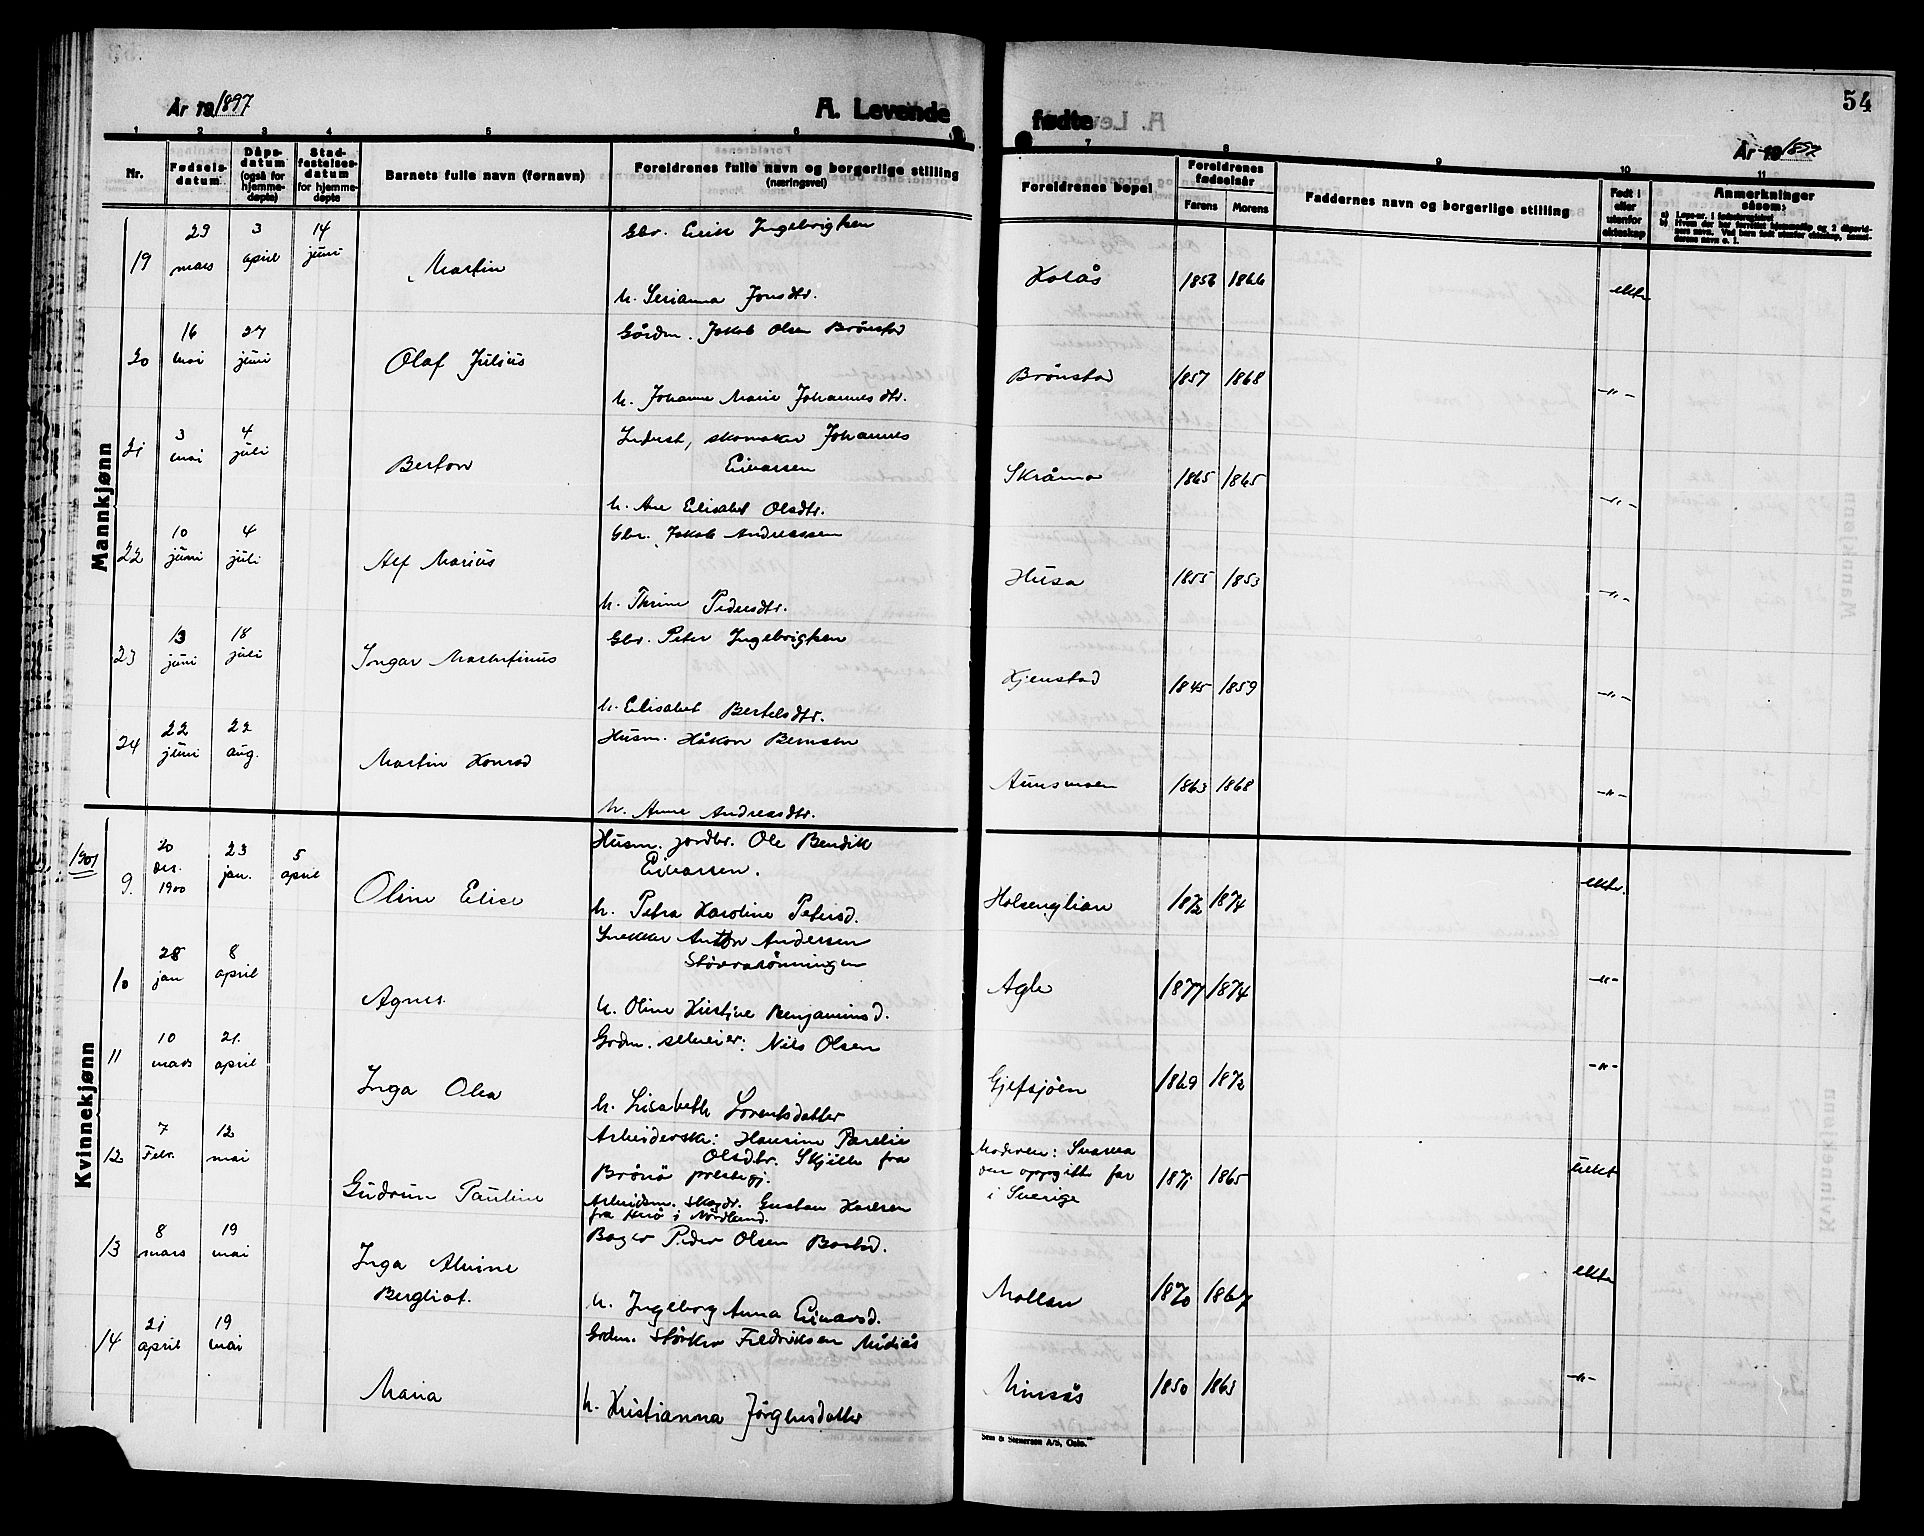 År 19 1897
A. Levende
fødte
54
År 19 1897
1 2 3 4 5 6 7 8 9 10 11
Nr.
Fødselsdatum
Dåpsdatum (også for hjemmedøpte)
Stadfestelsesdatum for hjemmedøpte
Barnets fulle navn (fornavn)
Foreldrenes fulle navn og borgerlige stilling (næringsvei)
Foreldrenes bopel
Foreldrenes fødselsår
Farens Morens
Faddernes navn og borgerlige stilling
Født i eller utenfor ekteskap
Anmerkninger såsom:
Mannkjønn
19 23 mars 3 april 14 juni Martin
Gbr. Erik Ingebrigtsen
h. Serianna Jonsdtr.
Kolås 1856 1866 ekte
20 16 mai 27 juni Olaf Julius
Gårdm. Jakob Olsen Brønstad
h. Johanne Marie Johannesdtr.
Brønstad 1857 1868 -"-
21 3 mai 4 juli Berton
Inderst, skomaker Johannes
Einarssen
h. Ane Elisabet Olsdtr.
Skråmo 1865 1865 -"-
22 10 juni 4 juli Alf Marius
Gbr. Jakob Andreassen
h. Thrine Pedersdtr.
Husa 1855 1853 -"-
23 13 juni 18 juli Ingar Martinius
Gbr. Peter Ingebrigtsen
h. Elisabet Bertelsdtr.
Kjenstad 1845 1859 -"-
24 22 juni 22 aug. Martin Konrad
Husm. Håkon Berntsen
h. Anne Andreasdtr.
Aunsmoen 1863 1868 -"-
Kvinnekjønn
1901
9. 20 des. 1900 23 jan. 5 april Oline Elise
Husm. jordbr. Ole Bendik
Einarsen.
h. Petra Karoline Petersd.
Holsenglian 1872 1874 ekte.
10 28 jan 8 april Agnes.
Snekker Anton Andersen
Støvrarønningen
h. Oline Kristine Benjaminsd.
Agle 1877 1874 -"-
11 10 mars 21. april Inga Olea
Grdm. selveier: Nils Olsen
h. Lisabeth Lorentsdatter
Gjefsjøen 1869 1872 -"-
12 7 Febr. 12 mai Gudrun Pauline
Arbeiderske: Hansine Parelie
Olsdtr. Skjille fra
Brønø prestegj.
Arbeidsm. Skogdr. Gustav Karlsen
fra Herø i Nordland.
Moderen: Snaasa
den oppgitte far
i Sverige
1871 1865 uekt
13 8 mars 19 mai Inga Alvine
Bergliot.
Bager Peder Olsen Bostad.
h. Ingeborg Anna Einarsd.
Mollan 1870 1867 ekte
14 21 april 19 mai Maria
Grdm. Størker Fredriksen Midtiås
h. Kristianna Jørgensdatter
Minsås 1850 1863 -"-
Sem & Stenersen A/S, Oslo.